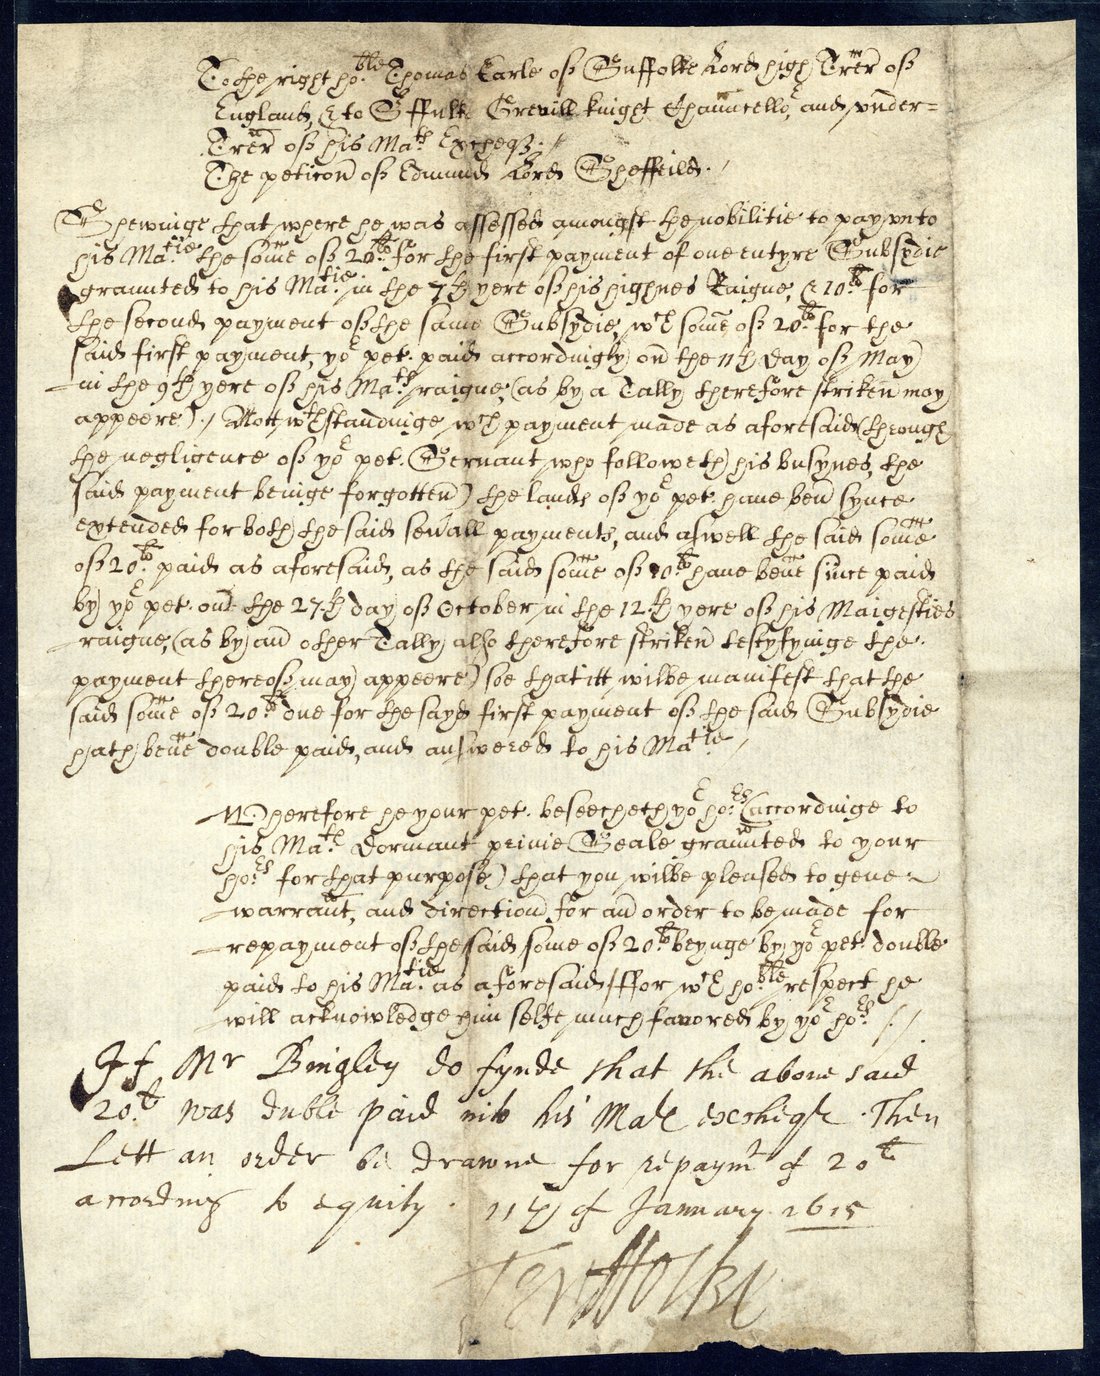 To the right ho:ble Thomas Earle of Suffolke Lord high Trer of
England, & to Sr ffulke Grevill knight Chauncellor, and vnder=
Trer of his Mats Excheqr. /
The peticon of Edmund Lord Sheffeild. /
Shewinge that where he was assessed amongst the nobilitie to pay vnto
his Matie the some of 20li for the first payment of one entyre Subsydie
graunted to his Matie in the 7th yere of his highnes Raigne, & 10li for
the second payment of the same Subsydie, wch some of 20li for the
said first payment, yor pet. paid accordingly on the 11th day of May
in the 9th yere of his Mats raigne, (as by a Tally therefore striken may
appeere). / Nottwthstandinge wch payment made as aforesaid (through
the negligence of yor pet. Servant who followeth his busynes, the
said payment beinge forgotten) the lands of yor pet. haue ben synce
extended for both the said seuall payments, and aswell the said some
of 20li paid as aforesaid, as the said some of 10li haue bene since paid
by yor pet. on the 27th day of October in the 12th yere of his Maigesties
raigne, (as by an other Tally also therefore striken testyfyinge the
payment thereof may appeere) soe that itt wilbe manifest that the
said some of 20li due for the sayd first payment of the said Subsydie
hath bene double paid, and answered to his Matie /
Wherefore he your pet. beseecheth yor ho:rs (accordinge to
his Mats Dormant privie Seale graunted to your
ho:rs for that purpose) that you wilbe pleased to geue
warrant, and direction for an order to be made for
repayment of the said some of 20li beynge by yor pet. double
paid to his Matie as aforesaid / ffor wch ho:ble respect he
will acknowledge him selfe much favored by yor ho:rs / . /
If Mr Bingley do fynde that the aboue said
20li was duble paid into his Mats excheqr. Then
Lett an order be drawne for repaymt of 20li
according to equity. 11th of January 1615
TSuffolke